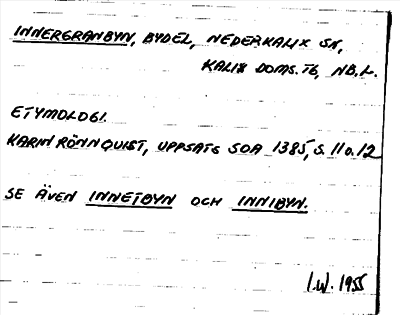 INNERGRANBYN, BYDEL, NEDERKALIX SN,
KALIX DOMS. TG, NB. L.
ETYMOLOGI.
KARIN RÖNNQUIST, UPPSATS SOA 1385, S. 11 o. 12
SE ÄVEN INNETBYN OCH INNIBYN.
I.W. 1955